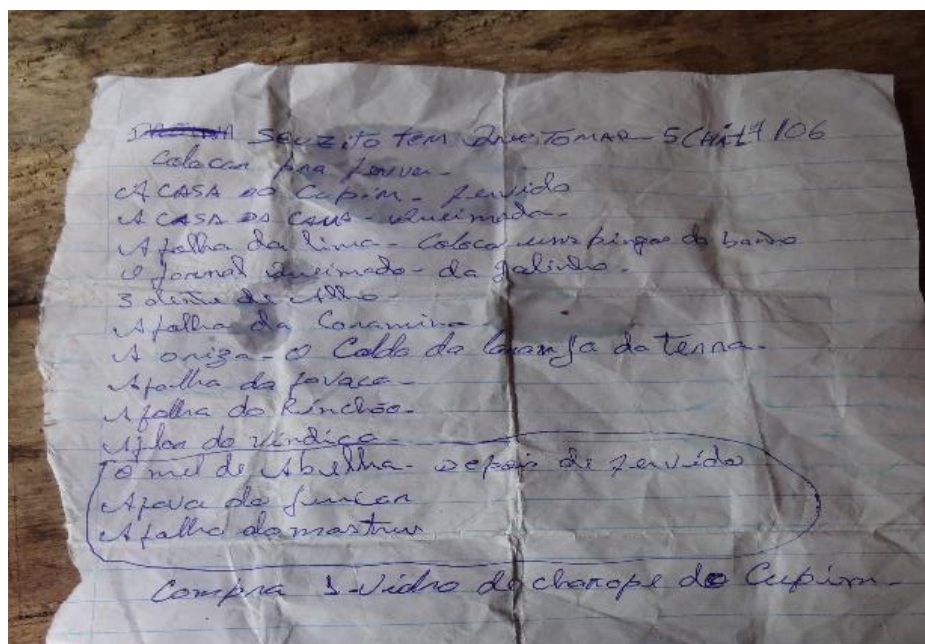 SEUZITO TEM QUE TOMAR - 5 CHA
Colocar pra ferver -
A CASA DO Cupim - fervido
A CASA DA - queimada -
A folha da lima - Coloca uns pingos do
O jornal queimado - da galinha -
3 dente de Alho -
A folha da Conamina
A oriza - O Caldo da laranja da terra -
A folha da favaca -
A folha do Rinchão -
A flor do vindica -
O mel de Abelha - depois de fervido
A fava do
A folha do mastruz
Compra 1 - vidro de charope de Cupim -